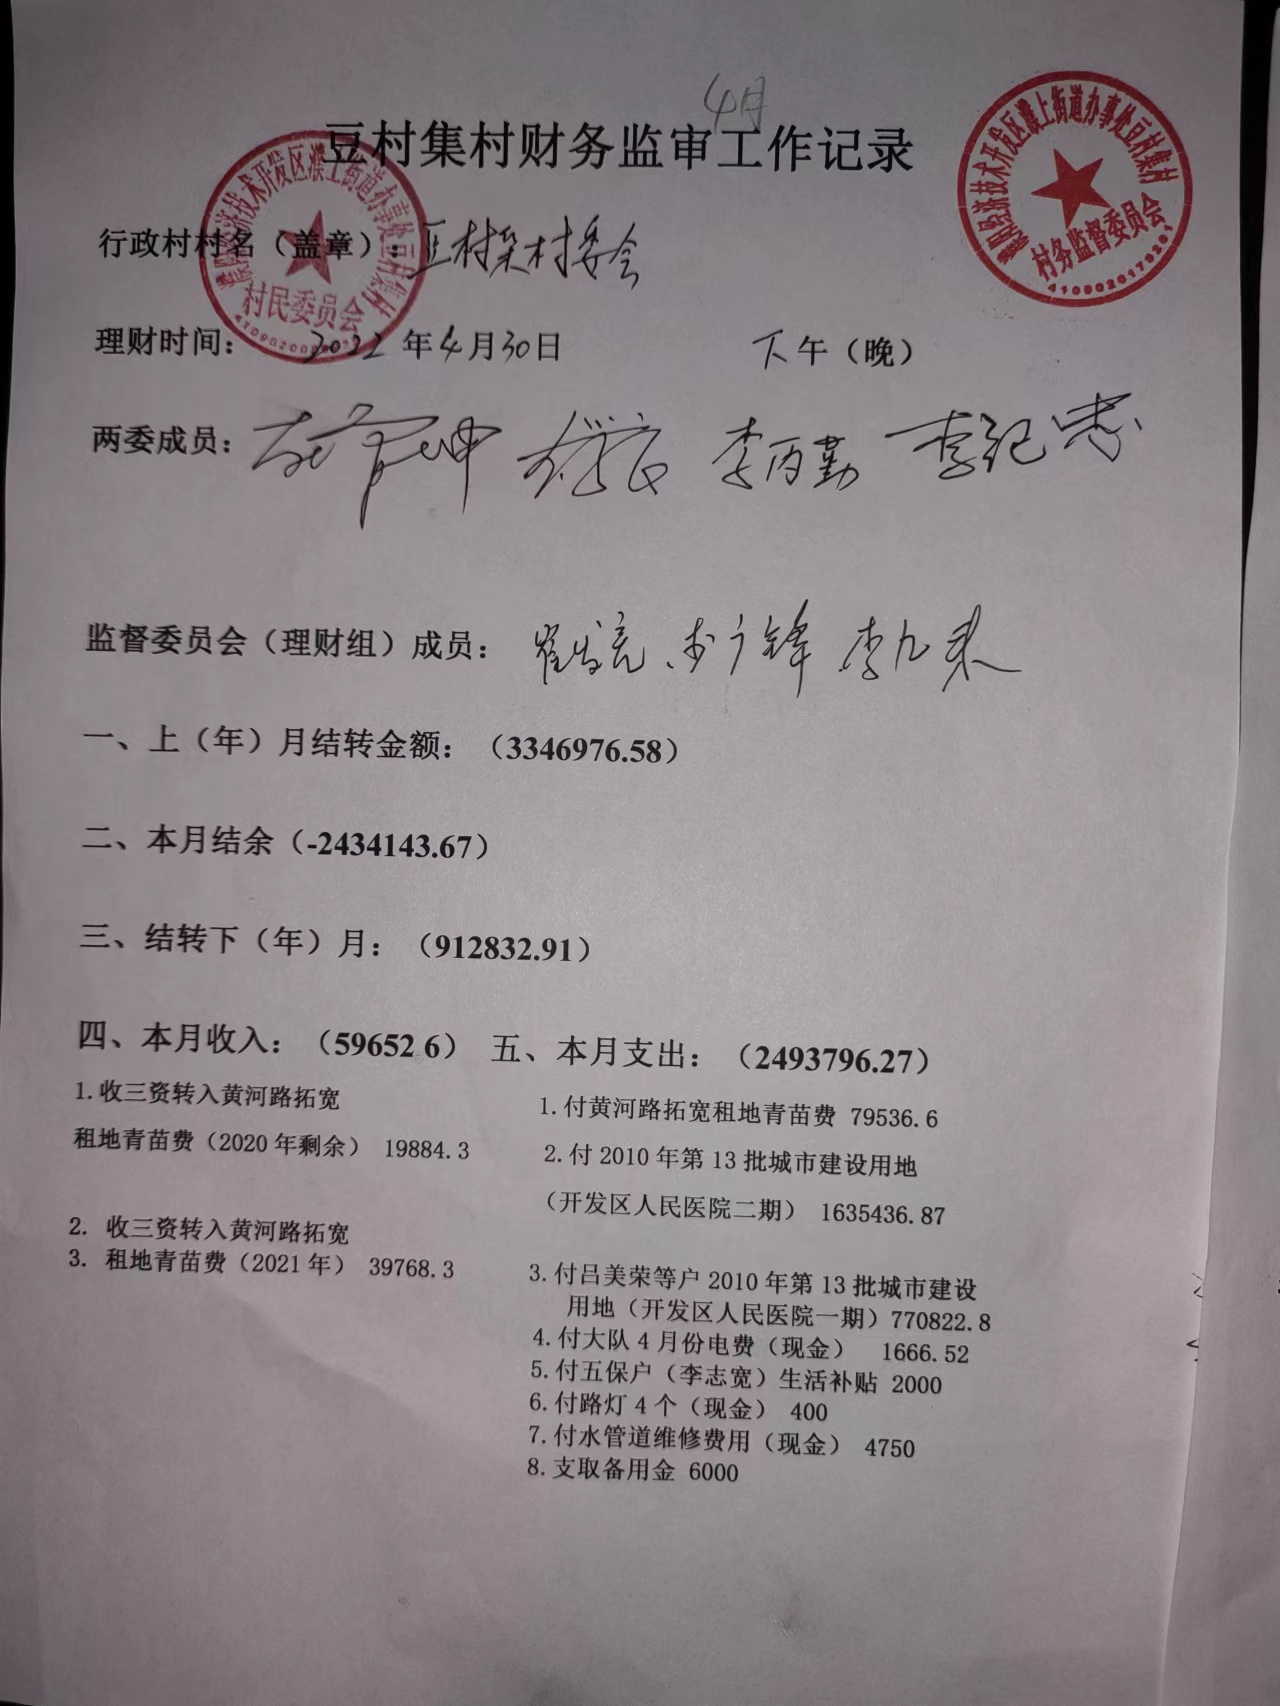 4月
豆村集村财务监审工作记录
行政村村名（盖章）：豆村集村委会
濮阳经济技术开发区濮上街道办事处豆村集村
村民委员会
濮阳经济技术开发区濮上街道办事处豆村集村
村务监督委员会
理财时间： 2022 年 4 月 30 日 下午（晚）
两委成员： 李丙勤 李纪忠
监督委员会（理财组）成员：
一、上（年）月结转金额：（3346976.58）
二、本月结余（-2434143.67）
三、结转下（年）月：（912832.91）
四、本月收入：（59652.6） 五、本月支出：（2493796.27）
1.收三资转入黄河路拓宽
租地青苗费（2020 年剩余） 19884.3
2. 收三资转入黄河路拓宽
3. 租地青苗费（2021 年） 39768.3
1.付黄河路拓宽租地青苗费 79536.6
2.付 2010 年第 13 批城市建设用地
（开发区人民医院二期） 1635436.87
3.付吕美荣等户 2010 年第 13 批城市建设
用地（开发区人民医院一期）770822.8
4.付大队 4 月份电费（现金） 1666.52
5.付五保户（李志宽）生活补贴 2000
6.付路灯 4 个（现金） 400
7.付水管道维修费用（现金） 4750
8.支取备用金 6000